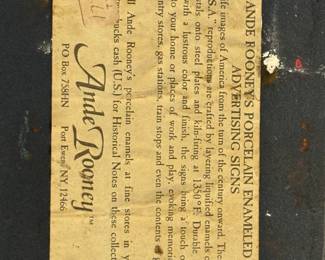 ANDE ROONEY'S PORCELAIN ENAMELED
ADVERTISING SIGNS
life images of America from the turn of the century onward. The
S.A." reproductions are crafted by layering liquified enamels o
tals onto steel plates and kiln-firing at 1350°F. Durable
with a lustrous color and finish, the signs bring a touch o
to your home or places of work and play, evoking memorie
ntry stores, gas stations, train stops and even the contents of g
ll Ande Rooney's porcelain enamels at fine stores in y
bucks cash (U.S.) for Historical Notes on these collect
Ande Rooney™
PO Box 758HN Port Ewen, NY, 12466